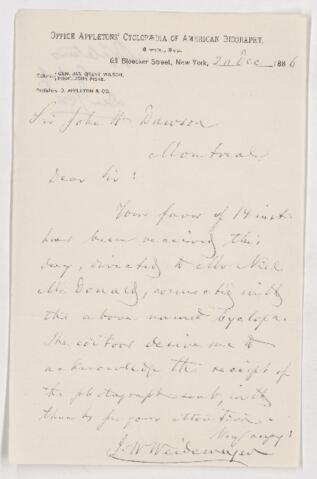 OFFICE APPLETONS' CYCLOPÆDIA OF AMERICAN BIOGRAPHY,
61 Bleecker Street, New York, 20 Dec 1886
Editors: GEN. JAS. GRANT WILSON,
PROF. JOHN FISKE.
Publishers: D. APPLETON & CO.
Sir John Wm Dawson
Montreal
Dear Sir:
Your favor of 14 inst.
has been received this
day, directed to Mr Neil
McDonald, connected with
the above named Cyclopa.
The editors desire me to
acknowledge the receipt of
the photograph sent, with
thanks for your attention.
Very truly
J. W. Weidemeyer